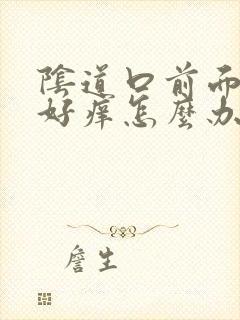 陰道口前而
好痒怎麼办
詹生